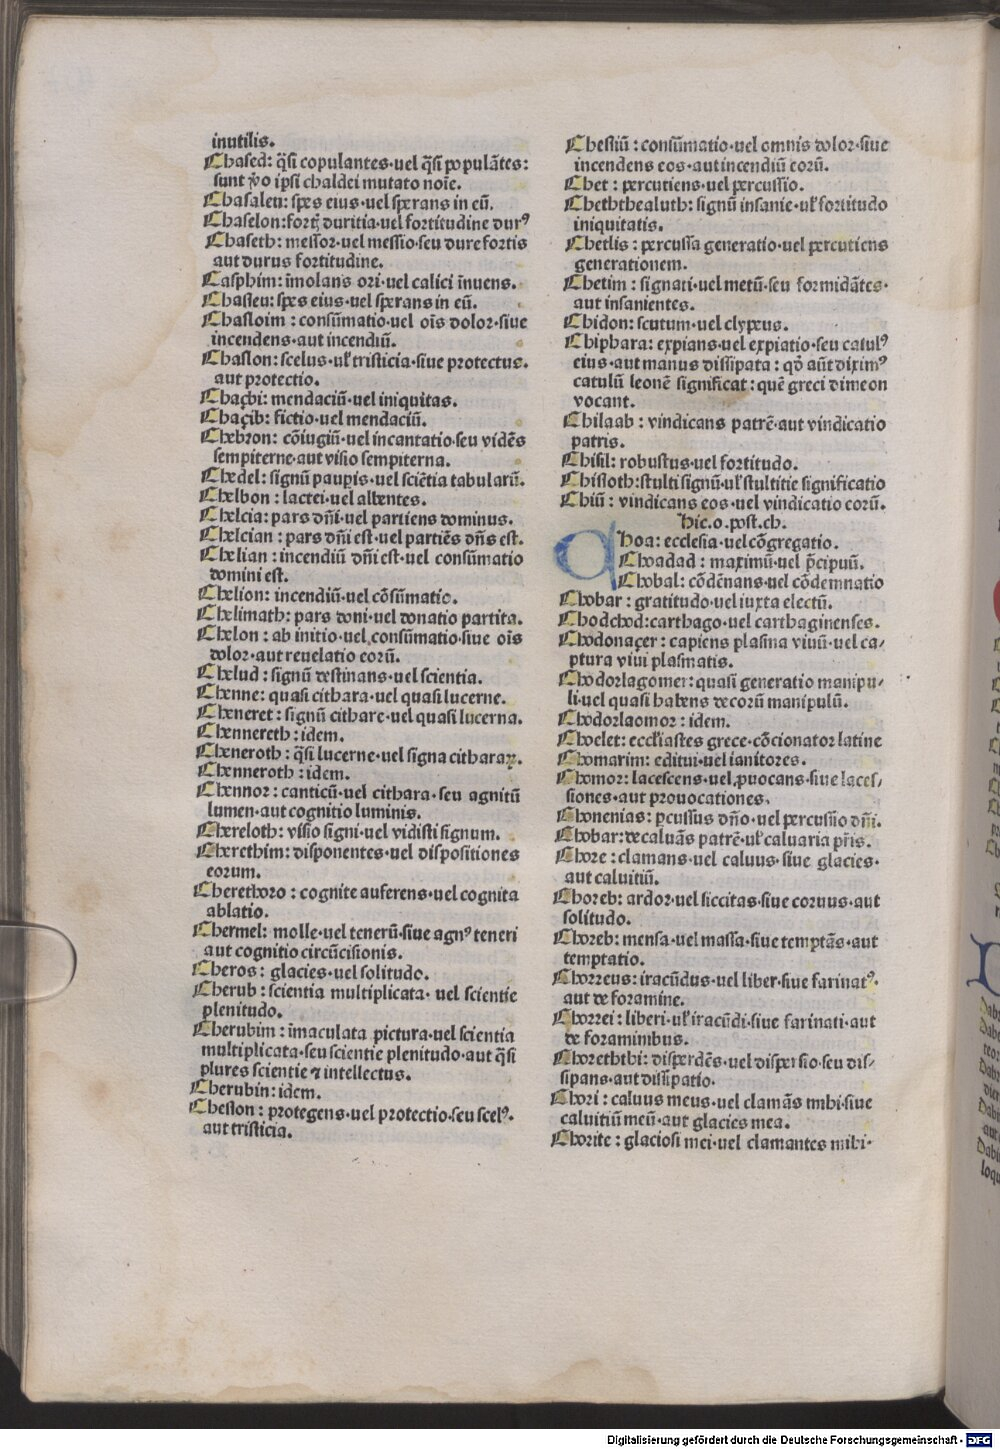 inutilis.
Chased: q̃si copulantes·uel q̃si populãtes:
sunt ꝟo ipsi chaldei mutato noĩe.
Chasaleu: spes eius·uel sperans in eũ.
Chaselon:fortꝭ duritia·uel fortitudine durꝰ
Chaseth: messor·uel messio·seu dure fortis
aut durus fortitudine.
Casphim: ĩmolans ori·uel calici ĩnuens.
Chasleu: spes eius·uel sperans in eũ.
Chasloim : consũmatio·uel oĩs dolor·siue
incendens·aut incendiũ.
Chaslon: scelus·uł tristicia·siue protectus.
aut protectio.
Chaçbi: mendaciũ·uel iniquitas.
Chaçib: fictio·uel mendaciũ.
Chebron: cõiugiũ·uel incantatio·seu vidẽs
sempiterne·aut visio sempiterna.
Chedel: signũ paupis·uel sciẽtia tabularũ.
Chelbon : lactei·uel albentes.
Chelcia: pars dñi·uel partiens dominus.
Chelcian : pars dñi est·uel partiẽs dñs est.
Chelian : incendiũ dñi est·uel consũmatio
domini est.
Chelion: incendiũ·uel cõsũmatio.
Chelimath: pars doni·uel donatio partita.
Chelon : ab initio·uel consũmatio·siue oĩs
dolor·aut reuelatio eorũ.
Chelud : signũ destinans·uel scientia.
Chenne: quasi cithara·uel quasi lucerne.
Cheneret : signũ cithare·uel quasi lucerna.
Chennereth : idem.
Cheneroth : q̃si lucerne·uel signa citharaꝝ.
Chenneroth : idem.
Chennor: canticũ·uel cithara·seu agnitũ
lumen·aut cognitio luminis.
Chereloth: visio signi·uel vidisti signum.
Cherethim: disponentes·uel dispositiones
eorum.
Cherethoro : cognite auferens·uel cognita
ablatio.
Chermel: molle·uel tenerũ·siue agnꝰ teneri
aut cognitio circũcisionis.
Cheros : glacies·uel solitudo.
Cherub : scientia multiplicata· uel scientie
plenitudo.
Cherubim : ĩmaculata pictura·uel scientia
multiplicata·seu scientie plenitudo·aut q̃si
plures scientie ⁊ intellectus.
Cherubin : idem.
Cheslon : protegens·uel protectio·seu scelꝰ.
aut tristicia.
Chesliũ : consũmatio·uel omnis dolor·siue
incendens eos·aut incendiũ eorũ.
Chet : percutiens·uel percussio.
Cheththealuth: signũ insanie·uł fortitudo
iniquitatis.
Chetlis : percussa generatio·uel percutiens
generationem.
Chetim : signati·uel metũ·seu formidãtes·
aut insanientes.
Chidon: scutum·uel clypeus.
Chiphara: expians·uel expiatio·seu catulꝰ
eius·aut manus dissipata : qđ aũt diximꝰ
catulũ leonẽ significat: quẽ greci dimeon
vocant.
Chilaab : vindicans patrẽ·aut vindicatio
patris.
Chisil: robustus·uel fortitudo.
Chisloth:stulti signũ·uł stultitie significatio
Chiũ : vindicans eos·uel vindicatio eorũ.
hic.o.post.ch.
Choa: ecclesia·uel cõgregatio.
Choadad : maximũ·uel p̃cipuũ.
Chobal: cõdẽnans·uel cõdemnatio
Chobar : gratitudo·uel iuxta electũ.
Chodchod:carthago·uel carthaginenses.
Chodonaçer : capiens plasma viuũ·uel ca⸗
ptura viui plasmatis.
Chodorlagomer: quasi generatio manipu⸗
li·uel quasi habens decorũ manipulũ.
Chodorlaomor : idem.
Choelet: eccłiastes grece·cõcionator latine
Chomarim: editui·uel ianitores.
Chomor: lacescens·uel ꝓuocans·siue laces⸗
siones·aut prouocationes.
Chonenias: ꝑcussus dño·uel percussio dñi.
Chobar: decaluãs patrẽ·uł caluaria pr̃is.
Chore : clamans·uel caluus·siue glacies·
aut caluitiũ.
Choreb: ardor·uel siccitas·siue coruus·aut
solitudo.
Choreb: mensa·uel massa·siue temptãs·aut
temptatio.
Chorreus: iracũdus·uel liber·siue farinatꝰ·
aut de foramine.
Chorrei : liberi·uł iracũdi·siue farinati·aut
de foraminibus.
Choreththi: disperdẽs·uel dispersio·seu dis⸗
sipans·aut dissipatio.
Chori : caluus meus·uel clamãs mihi·siue
caluitiũ meũ·aut glacies mea.
Chorite : glaciosi mei·uel clamantes mihi·
Digitalisierung gefördert durch die Deutsche Forschungsgemeinschaft - DFG